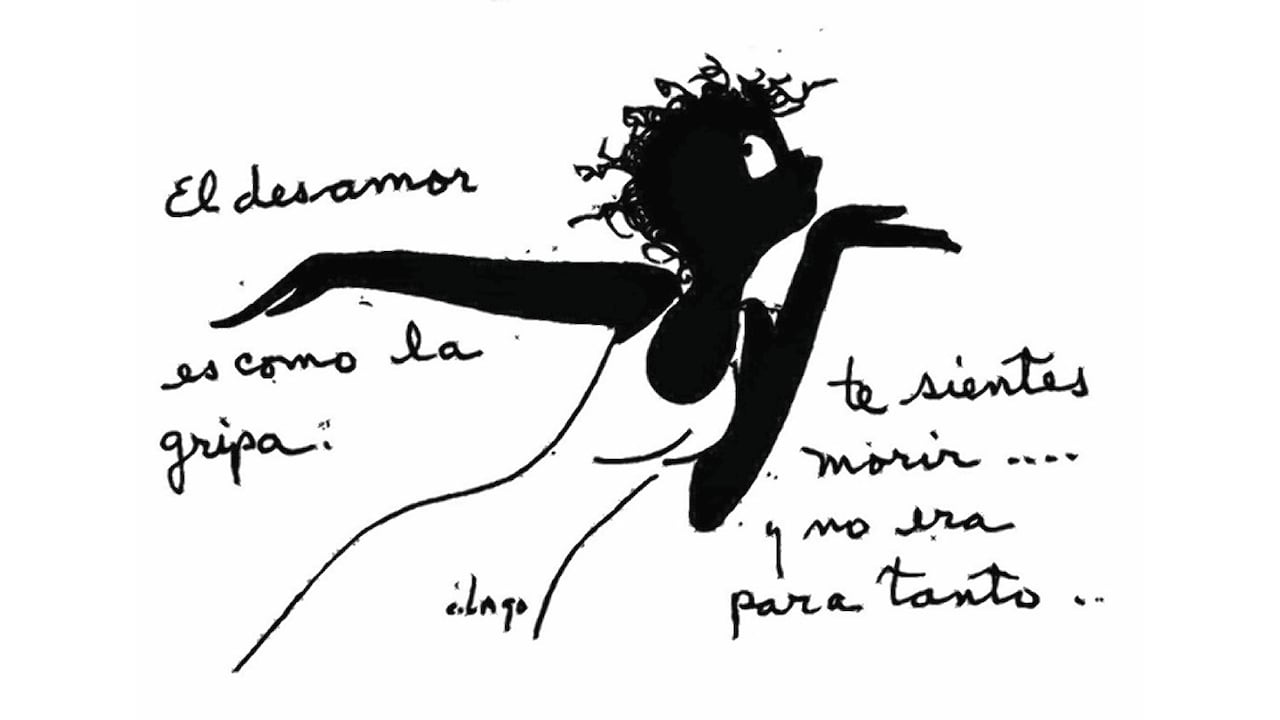 El desamor
es como la
gripa:
te sientes
morir ....
y no era
para tanto ...